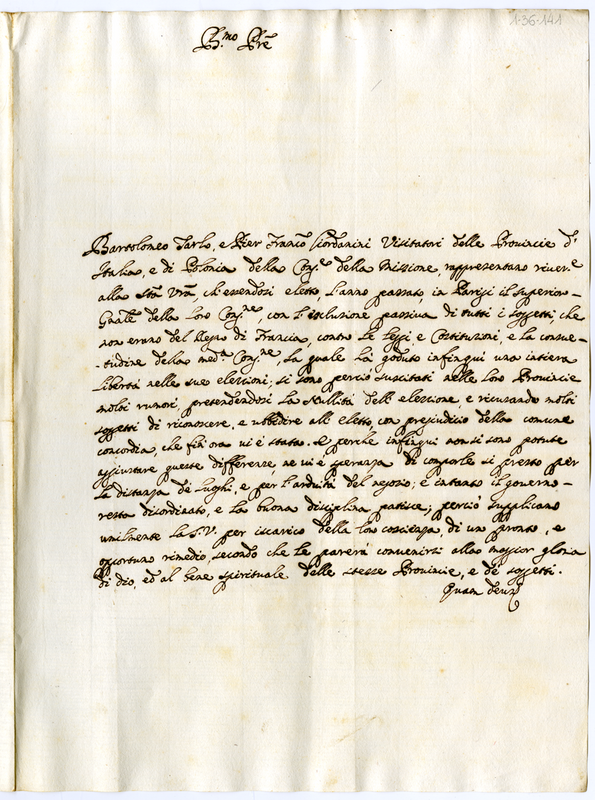 1-36-141
B.mo Pre
Bartolomeo Tarlo, e Pier Franco Giordanini Visitatori delle Provincie d'
Italia, e di Polonia della Cong.e della Missione, rappresentano river.e
alla Stà Vrà, ch'essendosi eletto, l'anno passato, in Parigi il Superior-
Gnàle della loro Cong.ne, con l'esclusione passiva di tutti i soggetti, che
non erano del Regno di Francia, contro le leggi e Costituzioni, e la consue-
-tudine della med.a Cong.ne, la quale hà goduto infinqui una intiera
libertà nelle sue elezioni; si sono perciò suscitati nelle loro Provincie
molti rumori, pretendendosi la Nullità dell'elezzione e ricusando molti
soggetti di riconoscere, e ubbedire all'eletto, con prejudicio della comune
concordia, che fin'ora vi è stata. Se perche infinqui non si sono potute
aggiustare queste differenze, ne vi è speranza di comporle si presto per
la distanza de luoghi, e per l'arduità del negozio; e intanto il governo-
resta disordinato, e la buona disciplina patisce; perciò supplicano
umilmente la S.V. per iscarico della loro coscienza, di un pronto, e
opportuno rimedio, secondo che le parerà convenirsi alla maggior gloria
di dio, ed al bene spirituale delle stesse Provincie, e de soggetti.
Quam deus